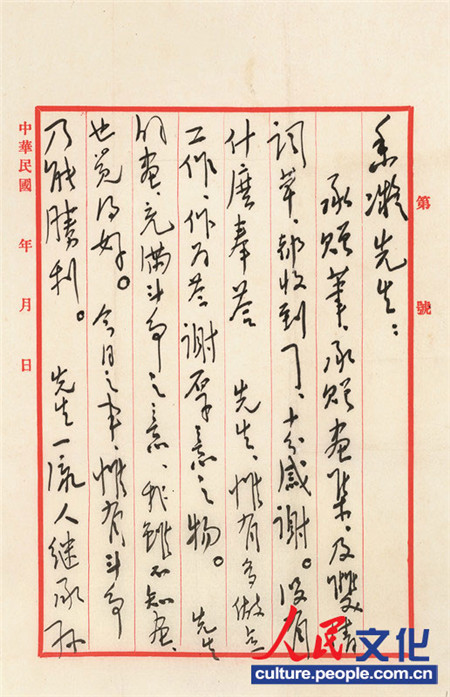 第 號
香凝先生：
承賜筆、承賜画集、及雙清
词草、都收到了、十分感谢。没有
什麼奉答 先生、惟有多做点
工作、作为答谢厚意之物。 先生
的画、充满斗争之意、我虽不知画、
也觉得好。 今日之事、惟有斗争
乃能勝利。 先生一流人继承孙
中華民國 年 月 日
人民文化
culture.people.com.cn